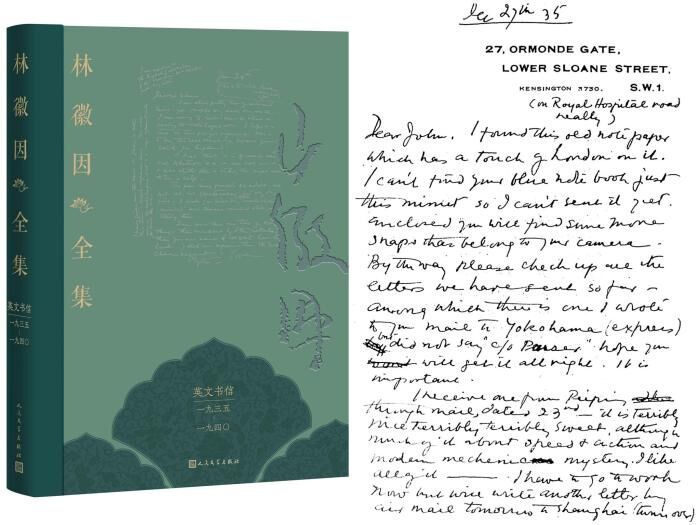 林徽因全集
英文书信
一九三五
一九四〇
林徽因全集
英文书信
一九三五
一九四〇
人民文学出版社
Dec 27th 35
27, ORMONDE GATE,
LOWER SLOANE STREET,
KENSINGTON 3730. S.W.1.
(on Royal Hospital road
really)
Dear John. I found this old note paper
which has a touch of London on it.
I can't find your blue note book just
this minute so I can't send it yet.
enclosed you will find some more
snaps that belong to your camera.
By the way please check up all the
letters we have sent so far —
among which there is one I wrote
to you mail to Yokohama (express)
but did not say "c/o Purser" hope you
will get it all right. It is
important.
I receive one from Peiping
through mail, dated 23rd — it is terribly
nice terribly terribly sweet, although
much of it about speed & action and
modern mechanic mystery. I like
all of it — I have to go to work
now but will write another letter by
air mail tomorrow to Shanghai (turn over)